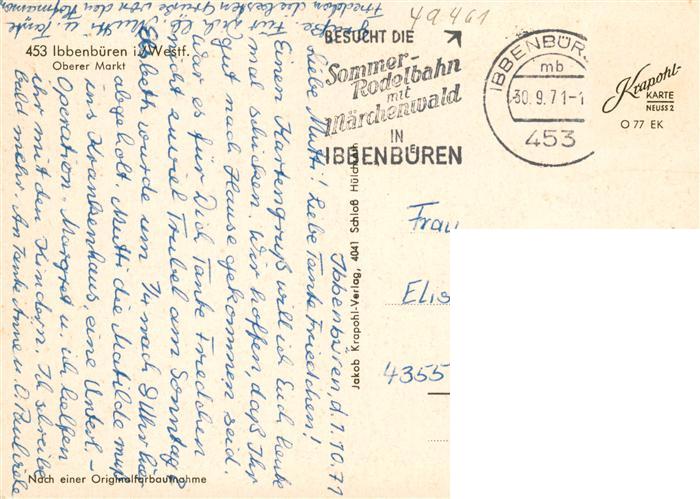 49461
453 Ibbenbüren i. Westf.
Oberer Markt
BESUCHT DIE
Sommer-
Rodelbahn
mit
Märchenwald
IN
IBBENBÜREN
IBBENBÜR
mb
30.9.71-1
453
Krapohl-
KARTE
NEUSS 2
O 77 EK
Ibbenbüren, d. 1.10.71
Liebe Mutti! Liebe Tante Friedchen!
Einen Kartengruß will ich Euch heute
mal schicken. Wir hoffen, daß Ihr
gut nach Hause gekommen seid.
War es für Dich Tante Friedchen
nicht zuviel Trubel am Sonntag?
Elsbeth wurde um 1/4 nach 8 Uhr hier
abgeholt. Mutti die Matilde muß
ins Krankenhaus, eine Unterl.-
Operation. Margret u. ich helfen
ihr mit den Kindern. Ich schreibe
bald mehr. An Tante Anne u. O. Paul viele
Grüße. Für Dich lb. Mutti u. Tante
Friedchen die besten Grüße von den
Jakob Krapohl-Verlag, 4041 Schloß Hülchrath
Nach einer Originalfarbaufnahme
Frau
Elis
4355